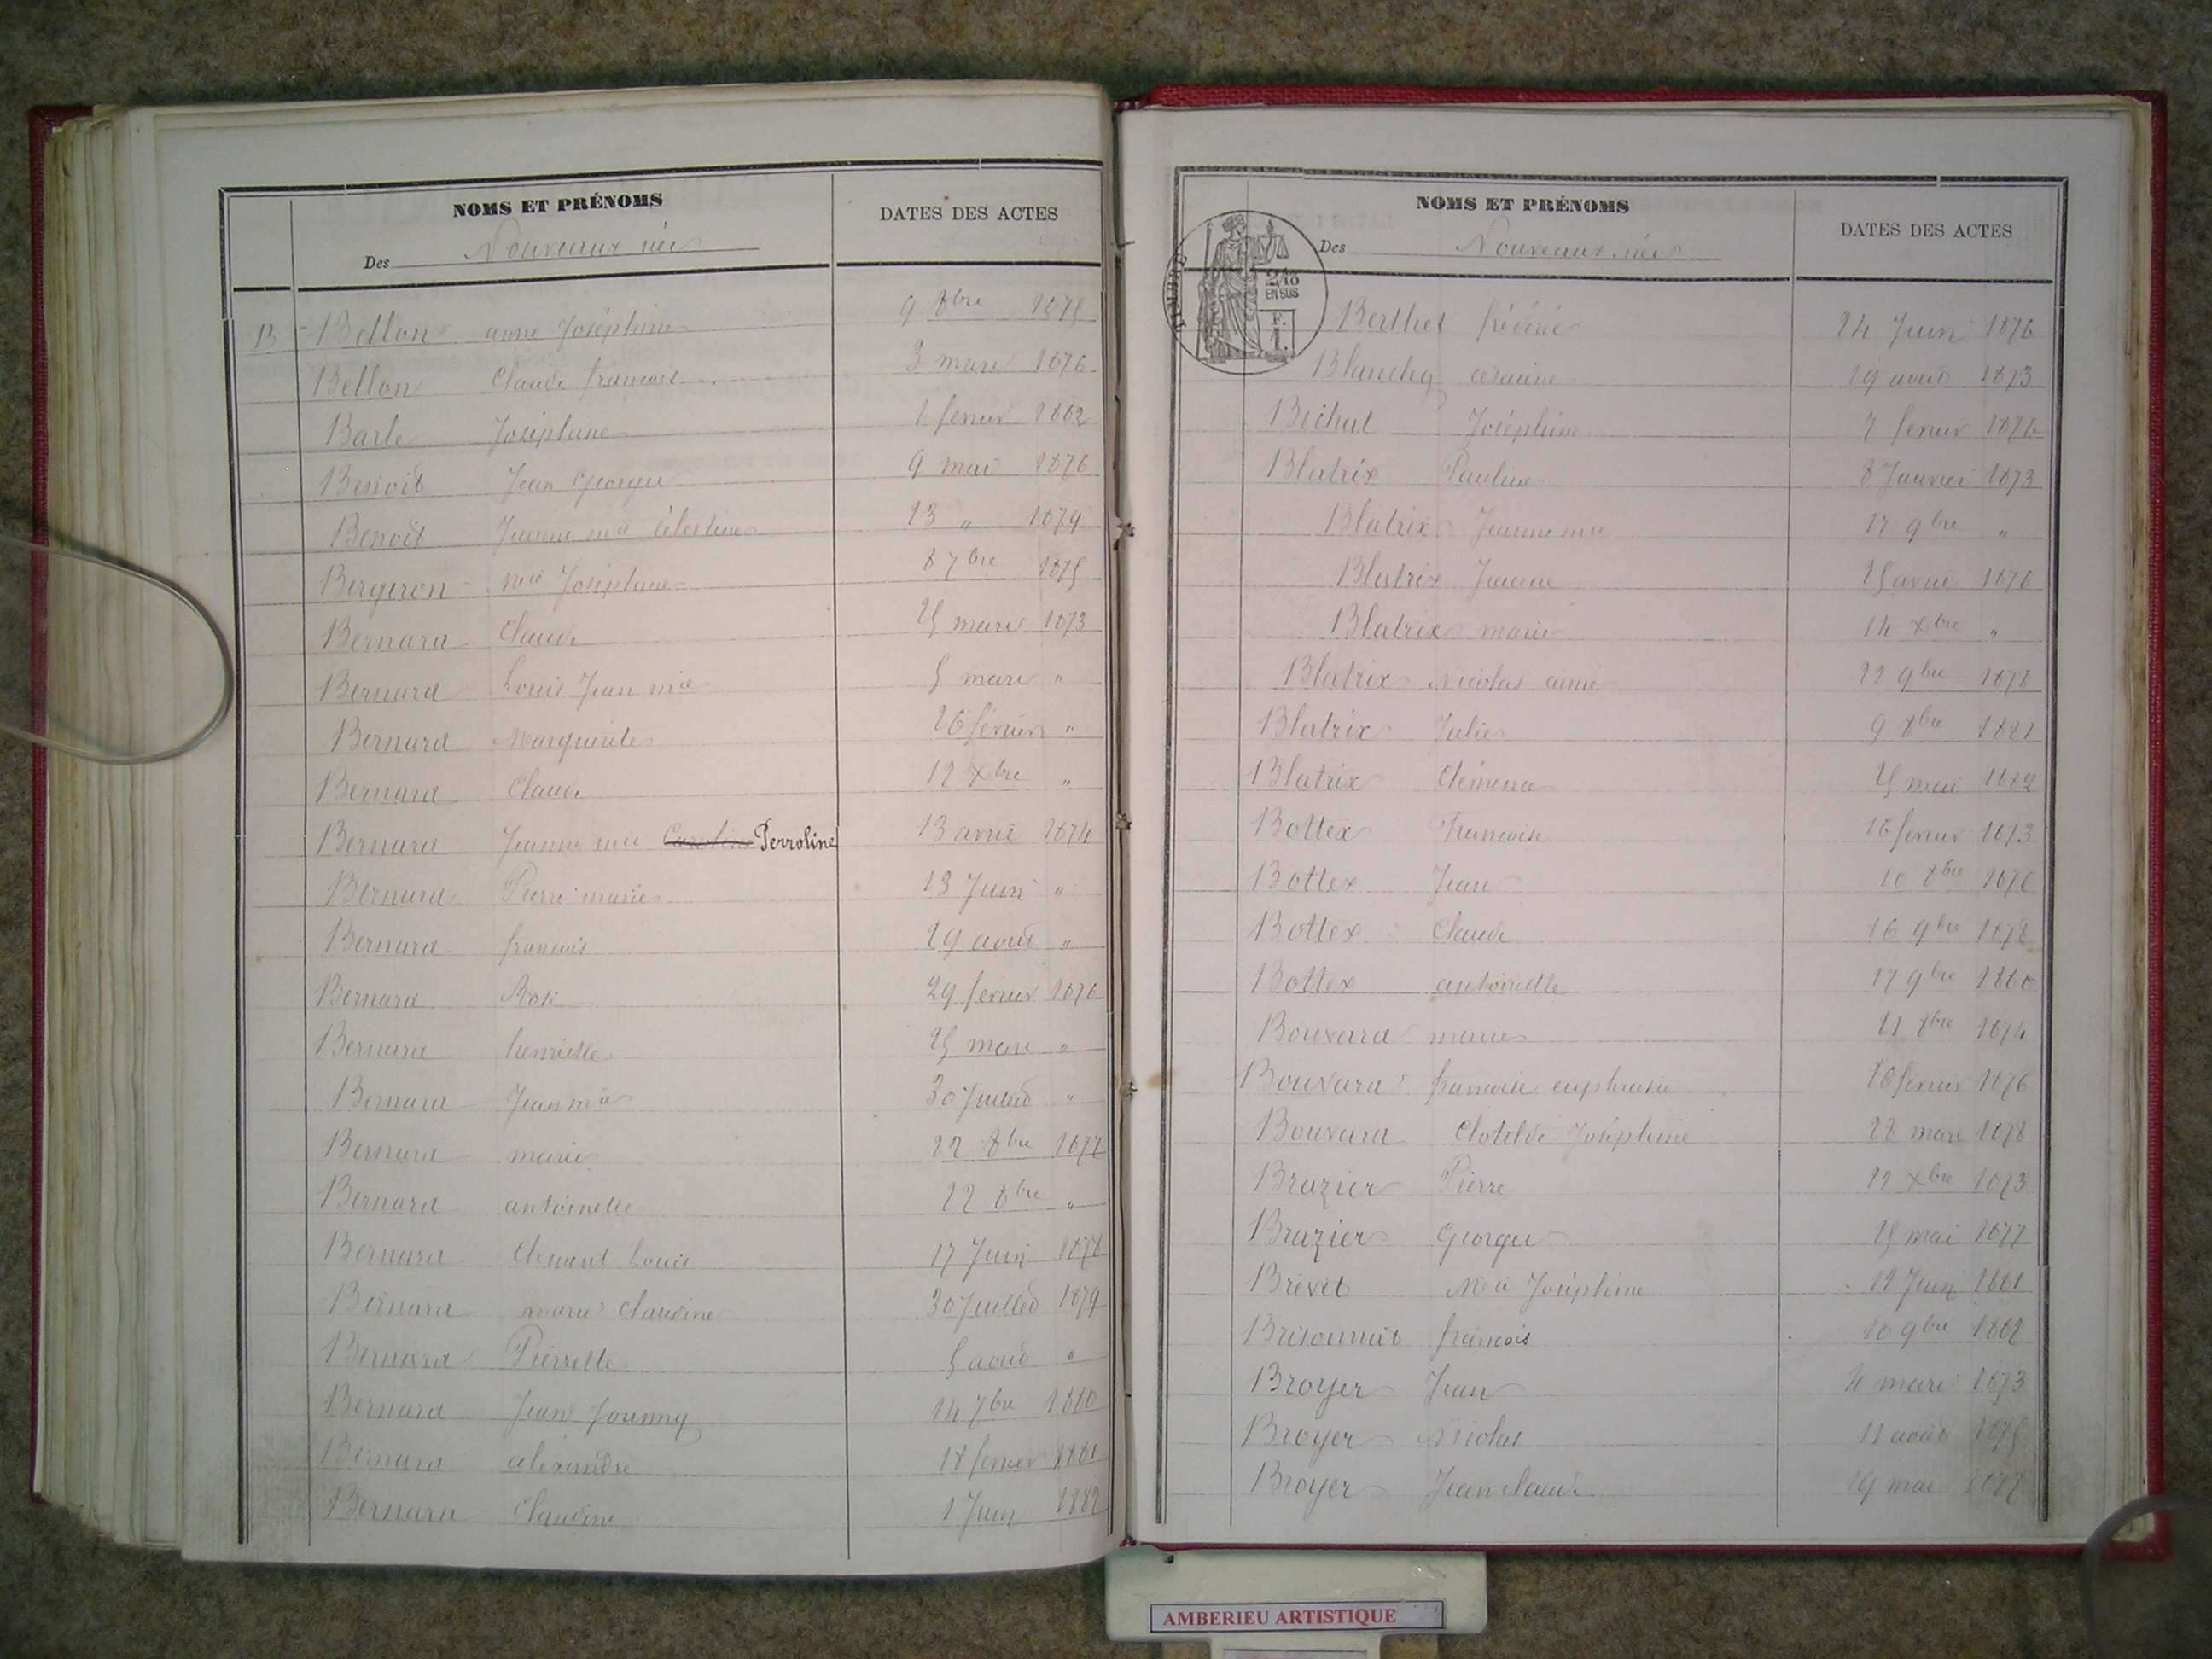 NOMS ET PRÉNOMS
Des Nouveaux nés
DATES DES ACTES
B Bellon anne Joséphine 9 8bre 1875
Bellon Claude françois 3 mars 1876
Barle Joséphine 1 fevrier 1882
Benoit Jean Georges 9 mai 1876
Benoit Jeanne mie Célestine 13 " 1879
Bergeron mie Joséphine 8 7bre 1875
Bernard Claude 25 mars 1873
Bernard Louis Jean mie 5 mars "
Bernard Marguerite 26 février "
Bernard Claude 12 xbre "
Bernard Jeanne mie Caroline Perroline 13 avril 1874
Bernard Pierre marie 13 Juin "
Bernard françois 29 aout "
Bernard Rose 29 fevrier 1876
Bernard henriette 25 mars "
Bernard Jean mie 30 Juillet "
Bernard marie 22 8bre 1877
Bernard antoinette 22 8bre "
Bernard Clément Louis 17 Juin 1878
Bernard marie Claudine 30 Juillet 1879
Bernard Pierrette 5 aout "
Bernard Jean Joanny 14 7bre 1880
Bernard alexandre 18 fevrier 1881
Bernard Claudine 1 Juin 1882
NOMS ET PRÉNOMS
Des Nouveaux nés
DATES DES ACTES
TIMBRE
2/10
EN SUS
F.
1.
Berthet frédéric 24 Juin 1876
Blanchy 19 avril 1873
Bichat Joséphine 7 fevrier 1876
Blatrix Pauline 8 Janvier 1873
Blatrix Jeanne mie 17 9bre "
Blatrix Jeanne 25 avril 1876
Blatrix marie 14 xbre "
Blatrix Nicolas aimé 22 9bre 1878
Blatrix Julie 9 8bre 1881
Blatrix Clémence 25 mai 1882
Bottex Françoise 16 fevrier 1873
Bottex Jean 10 8bre 1876
Bottex Claude 16 9bre 1878
Bottex antoinette 17 9bre 1880
Bouvard marie 21 8bre 1874
Bouvard françoise euphrasie 26 fevrier 1876
Bouvard Clotilde Joséphine 28 mars 1878
Brazier Pierre 12 xbre 1873
Brazier Georges 25 mai 1877
Brevet Mie Joséphine 12 Juin 1881
Brisonnat françois 20 9bre 1882
Broyer Jean 4 mars 1873
Broyer Nicolas 11 août 1875
Broyer Jean claude 19 mai 1877
AMBERIEU ARTISTIQUE